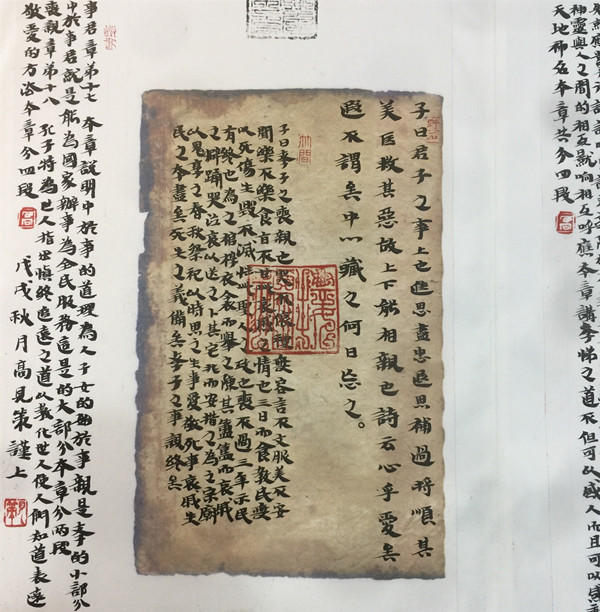 神靈與人之間的相互影响相互呼應本章講孝悌之道不但可以感人而且可以
天地神名本章共分四段
子曰君子之事上也進思盡忠退思補過將順其
美匡救其惡故上下能相親也詩云心乎愛矣
遐不謂矣中心藏之何日忘之。
子曰孝子之喪親也哭不偯禮無容言不文服美不安
聞樂不樂食旨不甘此哀戚之情也三日而食教民無
以死傷生毀不滅性此聖人之政也喪不過三年示民
有終也為之棺椁衣衾而舉之陳其簠簋而哀戚
之擗踊哭泣哀以送之卜其宅兆而安措之為之宗廟
以鬼享之春秋祭祀以時思之生事愛敬死事哀戚生
民之本盡矣死生之義備矣孝子之事親終矣
事君章第十七 本章說明中於事的道理為人子女的始於事親是孝的小部分
中於事君就是能為國家辦事為全民服務這是的大部分本章分兩段
喪親章第十八 孔子特為世人指出慎終追遠之道以教化世人使人們知道表達
敬愛的方法本章分四段
戊戌秋月高見策謹上